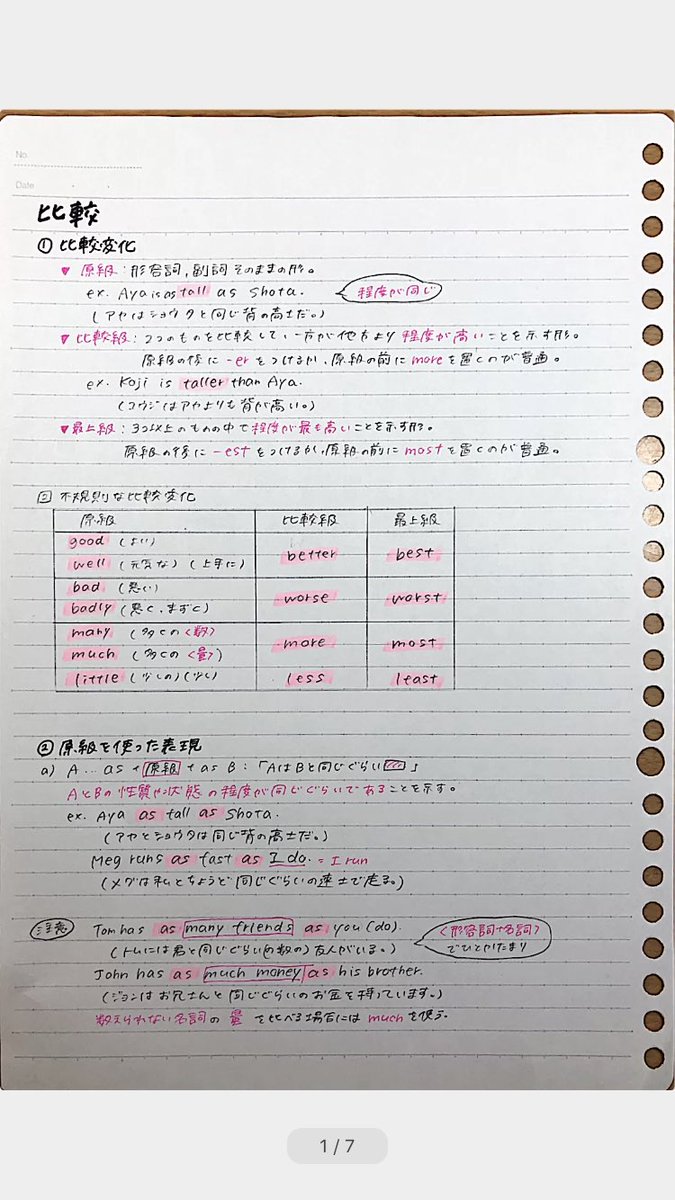 No.
Date
比較
① 比較変化
▼ 原級：形容詞，副詞そのままの形。
ex. Aya is as tall as Shota.
程度が同じ
（アヤはショウタと同じ背の高さだ。）
▼ 比較級：2つのものを比較して、一方が他方より程度が高いことを示す形。
原級の後に -er をつけるか、原級の前に more を置くのが普通。
ex. Koji is taller than Aya.
（コウジはアヤよりも背が高い。）
▼ 最上級：3つ以上のものの中で程度が最も高いことを示す形。
原級の後に -est をつけるか、原級の前に most を置くのが普通。
不規則な比較変化
原級 比較級 最上級
good （よい）
better best
well （元気な）（上手に）
bad （悪い）
worse worst
badly （悪く、まずく）
many （多くの〈数〉）
more most
much （多くの〈量〉）
little （少しの）（少し） less least
② 原級を使った表現
a) A … as + 原級 + as B：「AはBと同じぐらい 」
AとBの性質や状態の程度が同じぐらいであることを示す。
ex. Aya as tall as Shota.
（アヤとショウタは同じ背の高さだ。）
Meg runs as fast as I do. = I run
（メグは私とちょうど同じぐらいの速さで走る。）
注意 Tom has as many friends as you (do).
〈形容詞+名詞〉
でひとかたまり
（トムには君と同じぐらい(の数の)友人がいる。）
John has as much money as his brother.
（ジョンはお兄さんと同じぐらいのお金を持っています。）
数えられない名詞の量を比べる場合には much を使う。
1 / 7